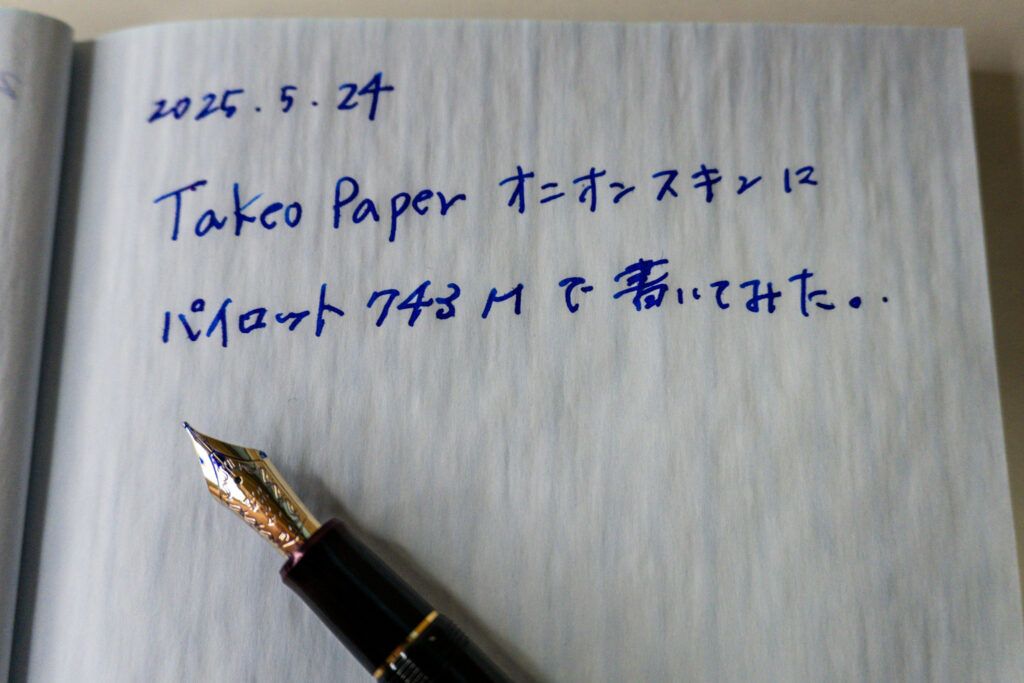 2025.5.24
Takeo Paper オニオンスキンに
パイロット 743 M で書いてみた。.